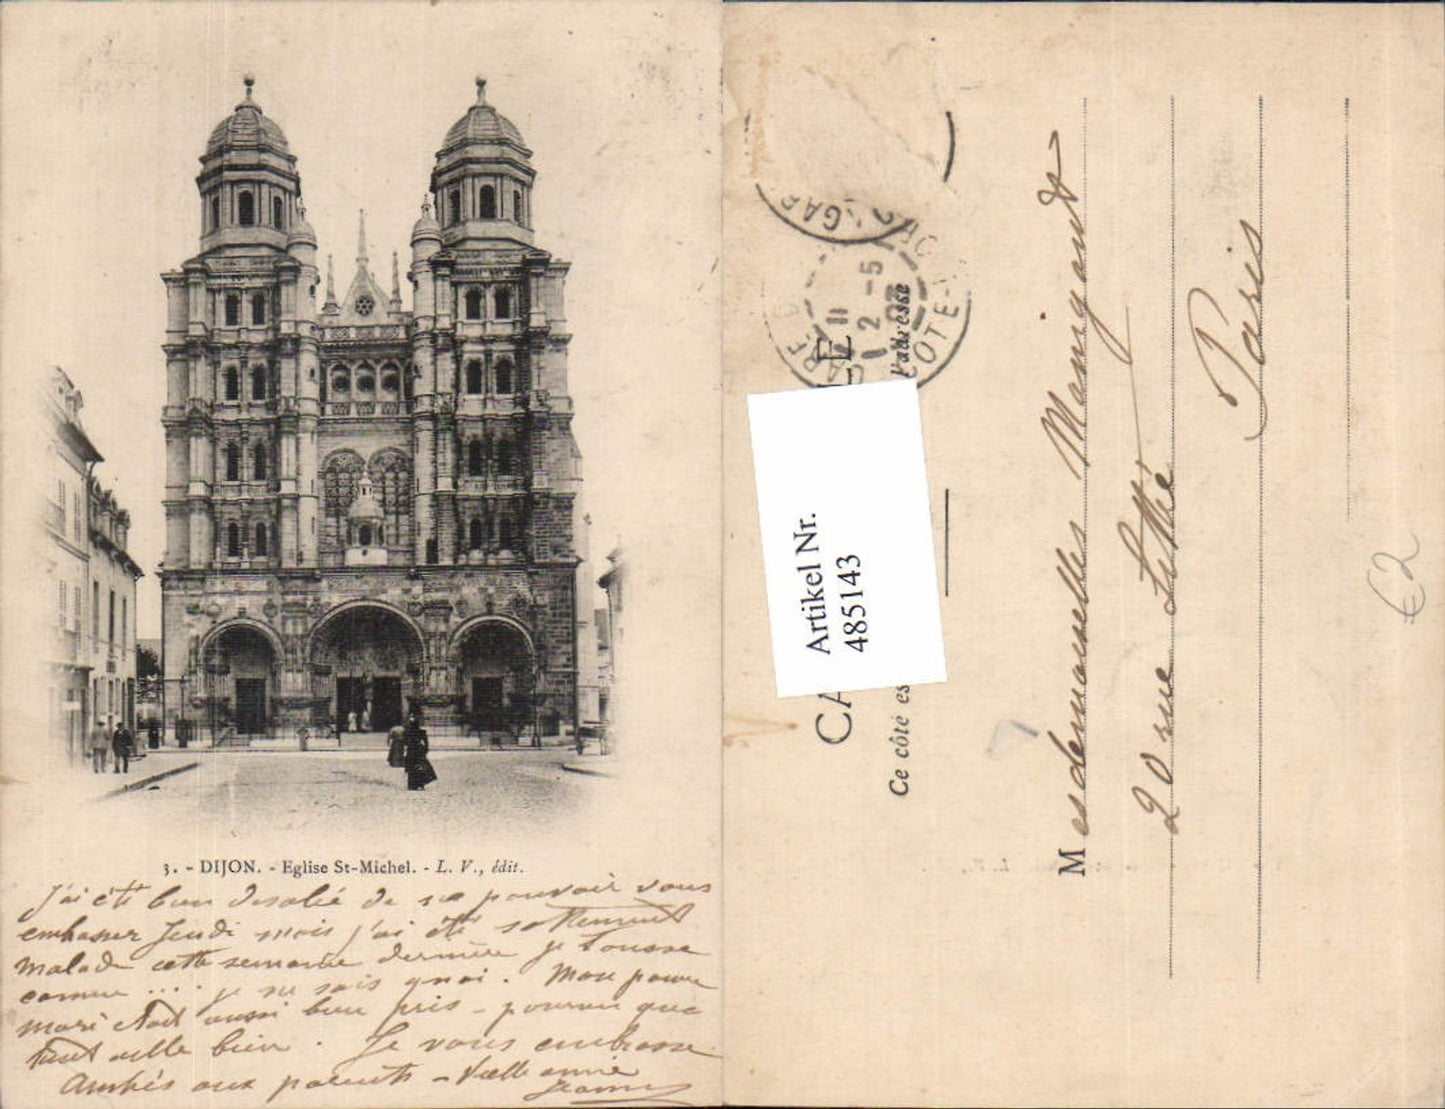 3. - DIJON. - Eglise St-Michel. - L. V., édit.
J'ai été bien désolée de ne pouvoir vous
embrasser Jeudi mais j'ai été sottement
malade cette semaine dernière je tousse
comme ... je ne sais quoi. Mon pauvre
mari était aussi bien pris - pourvu que
tout aille bien. Je vous embrasse
Amitiés aux parents - Vielle amie
GARE
GARE
11
2 -5
03
COTE-
CA
LE
Ce côté es
l'adresse
Artikel Nr.
485143
Mesdemoiselles Maingault
20 rue Littré
Paris
€2